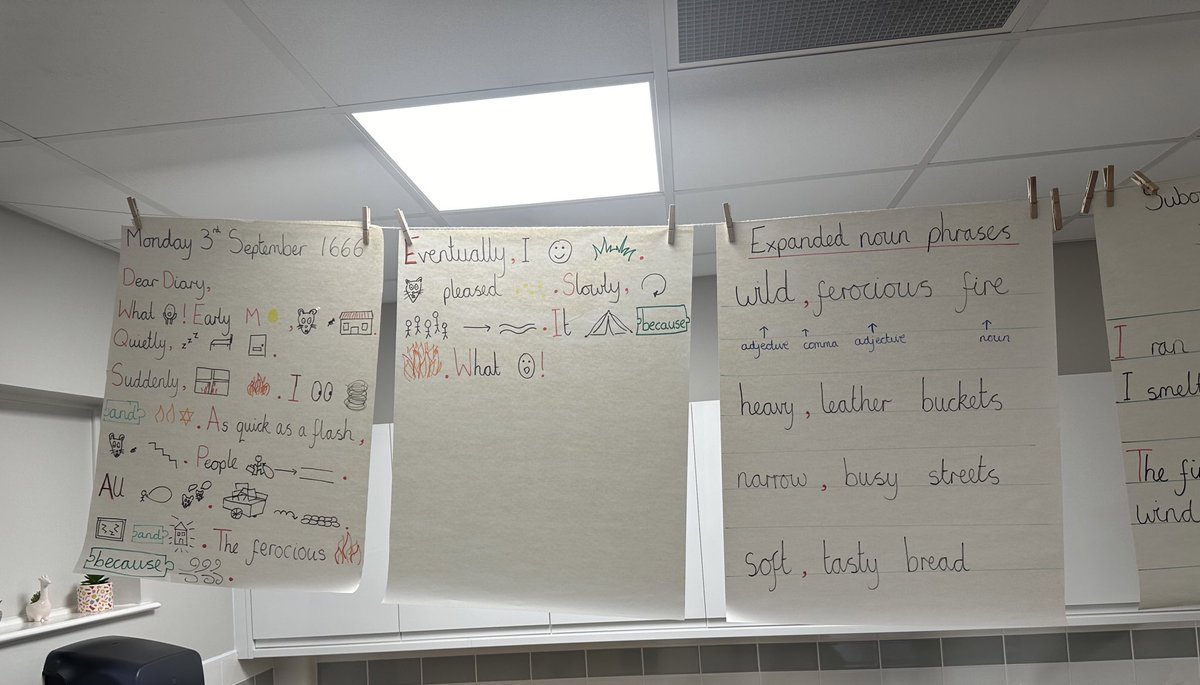 Monday 3rd September 1666
Dear Diary,
What ! Early M ,
Quietly, zzz .
Suddenly, . I
and . As quick as a flash,
. People .
All .
and . The ferocious
because .
Eventually, I .
pleased . Slowly,
. It because
. What !
Expanded noun phrases
wild, ferocious fire
adjective comma adjective noun
heavy, leather buckets
narrow, busy streets
soft, tasty bread
I ran
I smelt
wind